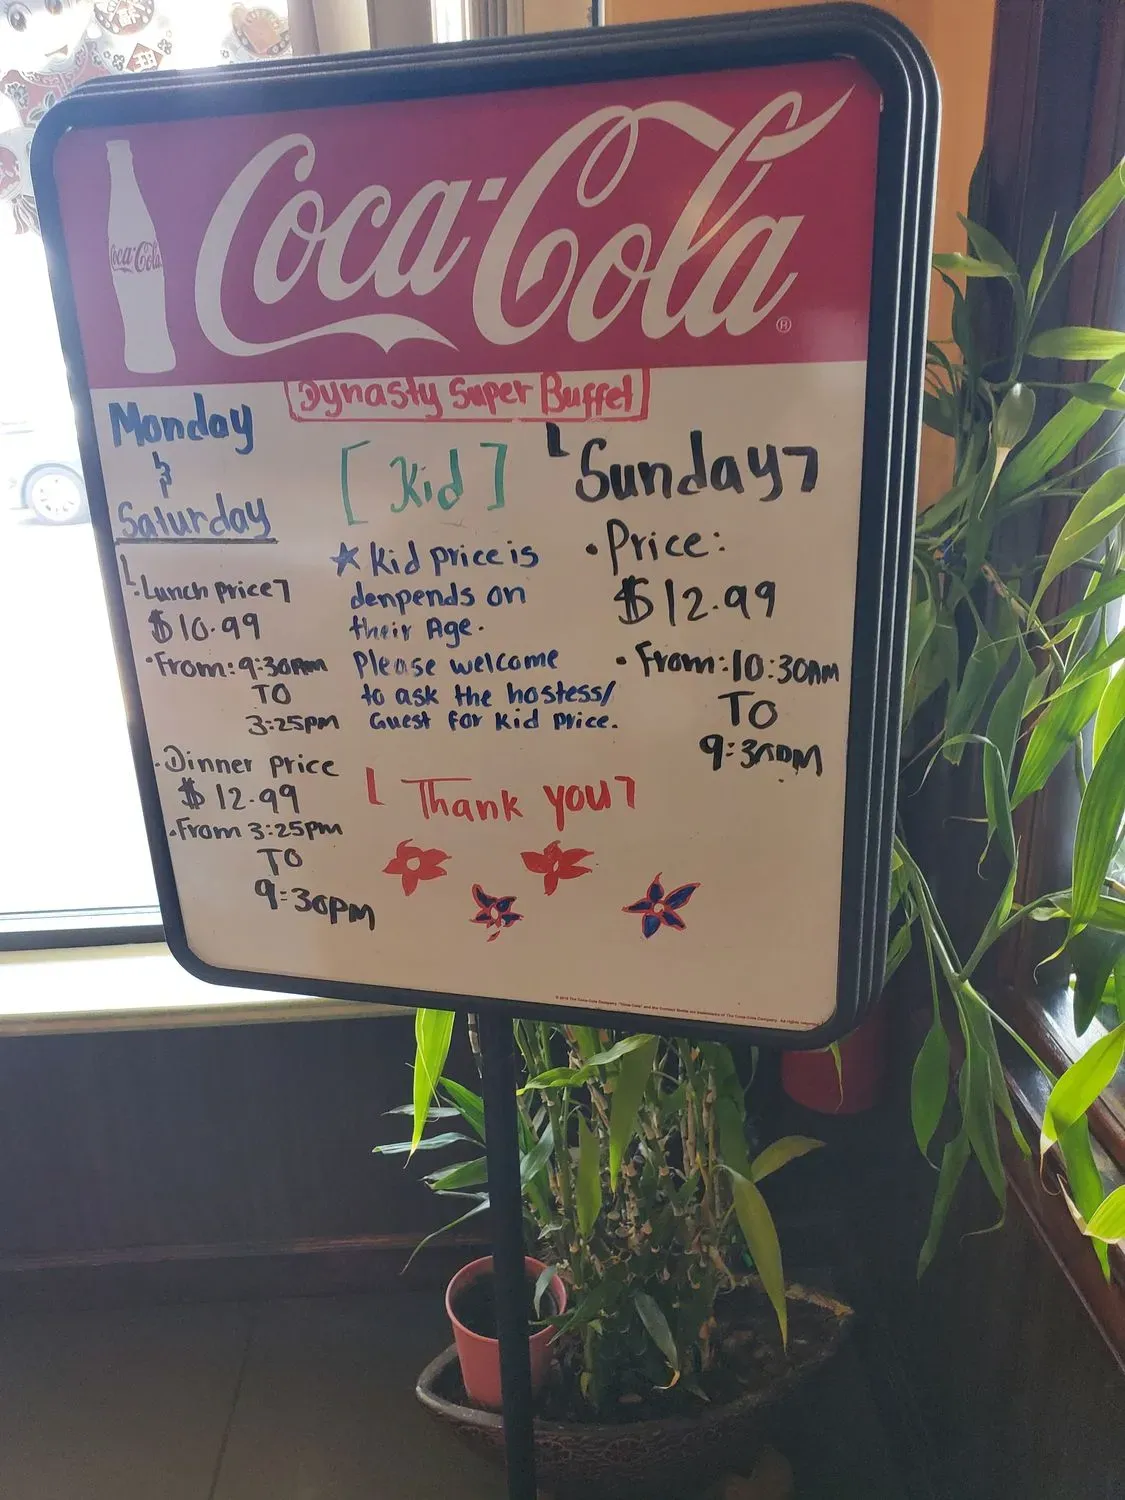 Coca-Cola
Coca-Cola
®
Dynasty Super Buffet
Monday
&
Saturday
Lunch price
$10.99
• From: 9:30AM
TO
3:25pm
• Dinner price
$12.99
• From 3:25pm
TO
9:30PM
[Kid]
★ Kid price is
denpends on
their Age.
Please welcome
to ask the hostess/
Guest for Kid Price.
Thank you
Sunday
• Price:
$12.99
• From: 10:30AM
TO
9:30PM